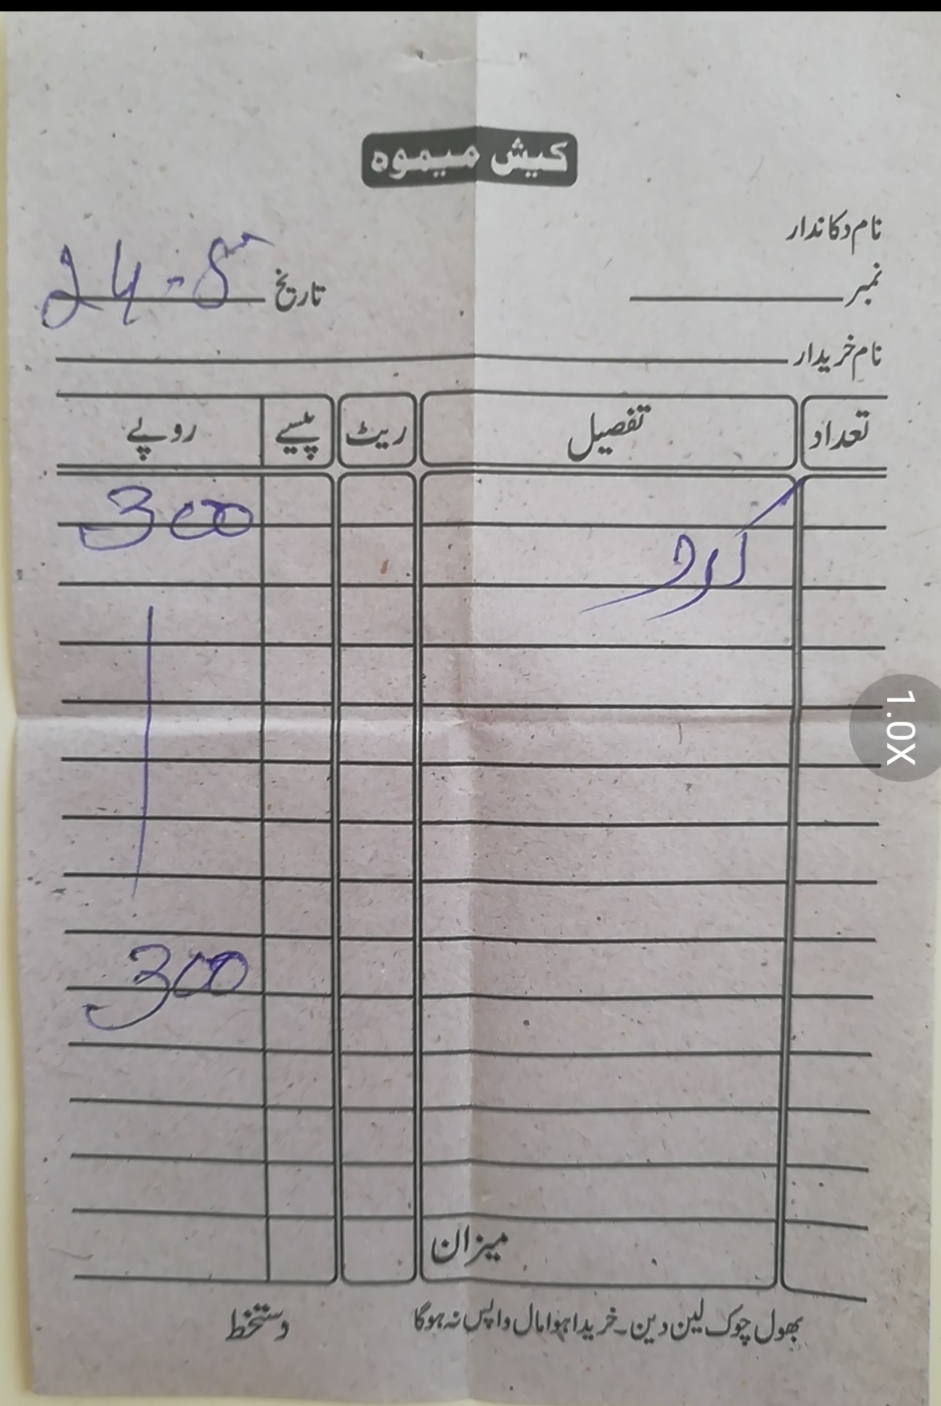 کیش میموہ
نام دکاندار
نمبر تاریخ 24-8
نام خریدار
تعداد تفصیل ریٹ پیسے روپے
300
300
میزان
بھول چوک لین دین۔ خریدا ہوا مال واپس نہ ہوگا
دستخط
1.0X